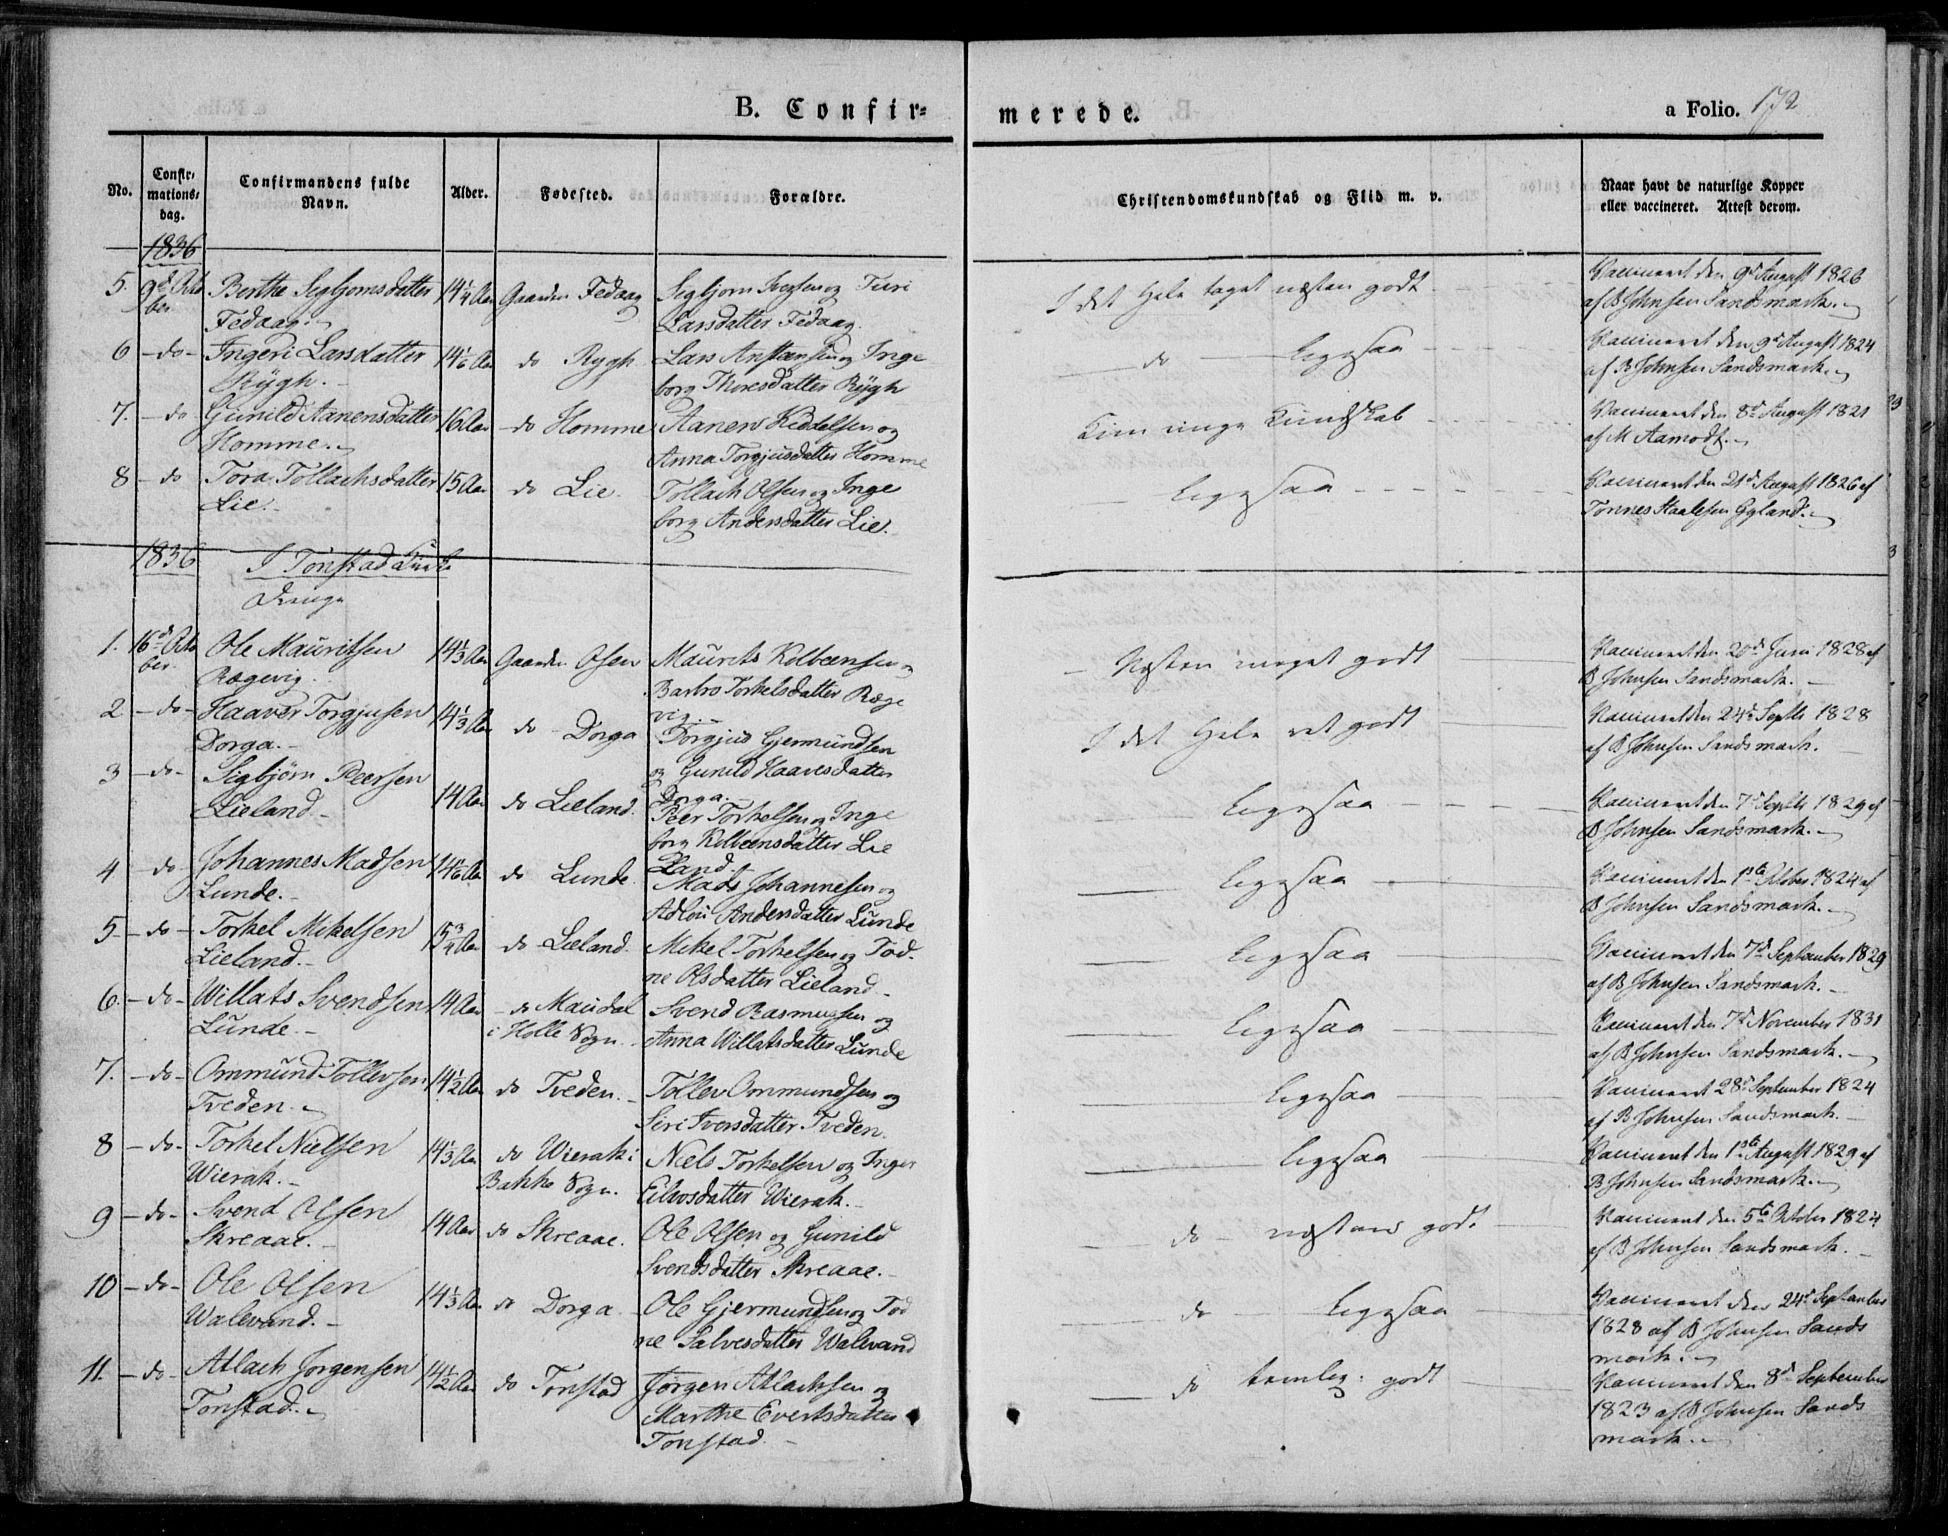 B. Confir=
merede.
a Folio. 172
No.
Confir-
mations-
dag.
Confirmandens fulde
Navn.
Alder.
Fødested.
Forældre.
Christendomskundskab og Flid m. v.
Naar havt de naturlige Kopper
eller vaccineret. Attest derom.
1836
5. 9d Octo Berthe Sigbjørnsdatter 14¼ Aar Gaarden Fedaag Sigbjørn Svensen og Turi I det Hele taget næsten godt Vaccineret den 9d August 1826
ber Fedaag. Larsdatter Fedaag. af B Johnsen Sandsmark.
6 - do - Ingeri Larsdatter 14 Aar do Rygh Lars Anstensen og Inge do ligesaa Vaccineret den 9d August 1824
Rygh. borg Thoresdatter Rygh af B Johnsen Sandsmark.
7. - do Gunild Aanensdatter 16 Aar do Homme Aanen Keddelsen og Kun ringe Kundskab Vaccineret den 8d August 1821
Homme. Anna Torgjusdatter Homme af M Aamodt.
8 - do Tora Tollachsdatter 15 Aar do Lie. Tollach Olsen og Inge ligesaa Vaccineret den 21d August 1826 af
Lie. borg Andersdatter Lie. Tønnes Gyland.
1836 I Tonstad Kirke
Drenge
1. 16d Octo Ole Mauritsen 14⅓ Aar Gaarden Osen Maurits Kolbeensen og Næsten meget godt Vaccineret den 20d Juni 1828 af
ber. Rægevig. Barbro Torkelsdatter Ræge B Johnsen Sandsmark.
vig.
2 - do - Haaver Torgjusen 14⅓ Aar do Dorga Torgjus Gjermundsen I det Hele ret godt Vaccineret den 24d Septbr 1828
Dorga. og Gunild Haaversdatter af B Johnsen Sandsmark.
Dorga.
3 - do - Sigbjørn Peersen 14 Aar do Lieland. Peer Torkelsen og Inge ligesaa Vaccineret den 7d Septbr 1829 af
Lieland. borg Kolbeensdatter Lie B Johnsen Sandsmark.
land.
4 - do - Johannes Madsen 14 Aar do Lunde Mads Johannesen og ligesaa Vaccineret den 1ste October 1824 af
Lunde. Andersdatter Lunde B Johnsen Sandsmark.
5 - do - Torkel Mikelsen 15¾ Aar do Lieland. Mikel Torkelsen og Tod- ligesaa Vaccineret den 7d September 1829
Lieland. ne Olsdatter Lieland af B Johnsen Sandsmark.
6. - do - Willats Svendsen 14 Aar do Maudal Svend Rasmussen og ligesaa Vaccineret den 7d November 1831
Lunde. i Holle Sogn. Anna Willatsdatter Lunde af B Johnsen Sandsmark.
7. - do - Ommund Tollevsen 14½ Aar do Tveden. Tollev Ommundsen og ligesaa Vaccineret 28d September 1824
Tveden. Siri Iversdatter Tveden. af B Johnsen Sandsmark.
8 - do - Torkel Nielsen 14⅓ Aar do Wierak i Niels Torkelsen og Inger ligesaa Vaccineret den 1ste August 1829 af
Wierak. Bakke Sogn. Eilevsdatter Wierak. B Johnsen Sandsmark.
9 - do - Svend Olsen 14 Aar do Skreaae. Ole Olsen og Gunild do næsten godt Vaccineret den 5te October 1824
Skreaae. Svendsdatter Skreaae. af B Johnsen Sandsmark.
10 - do - Ole Olsen 14⅓ Aar do Dorga Ole Gjermundsen og Tod do ligesaa Vaccineret den 24d September
Walevand. ne Salvesdatter Walevand 1828 af B Johnsen Sands
mark.
11. - do - Atlach Jørgensen 14½ Aar do Tonstad Jørgen Atlachsen og do temlig godt Vaccineret den 8d September
Tonstad. Marthe Evertsdatter 1823 af B Johnsen Sands
Tonstad. mark.